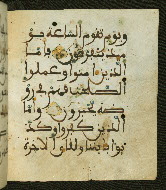 ويوم تقوم الساعة يو
مئذ يتفرقون فأما
الذين امنوا وعملوا
الصلحت فهم في رو
ضة يحبرون وأما
الذين كفروا وكذ
بوا بايتنا ولقاى الاخرة